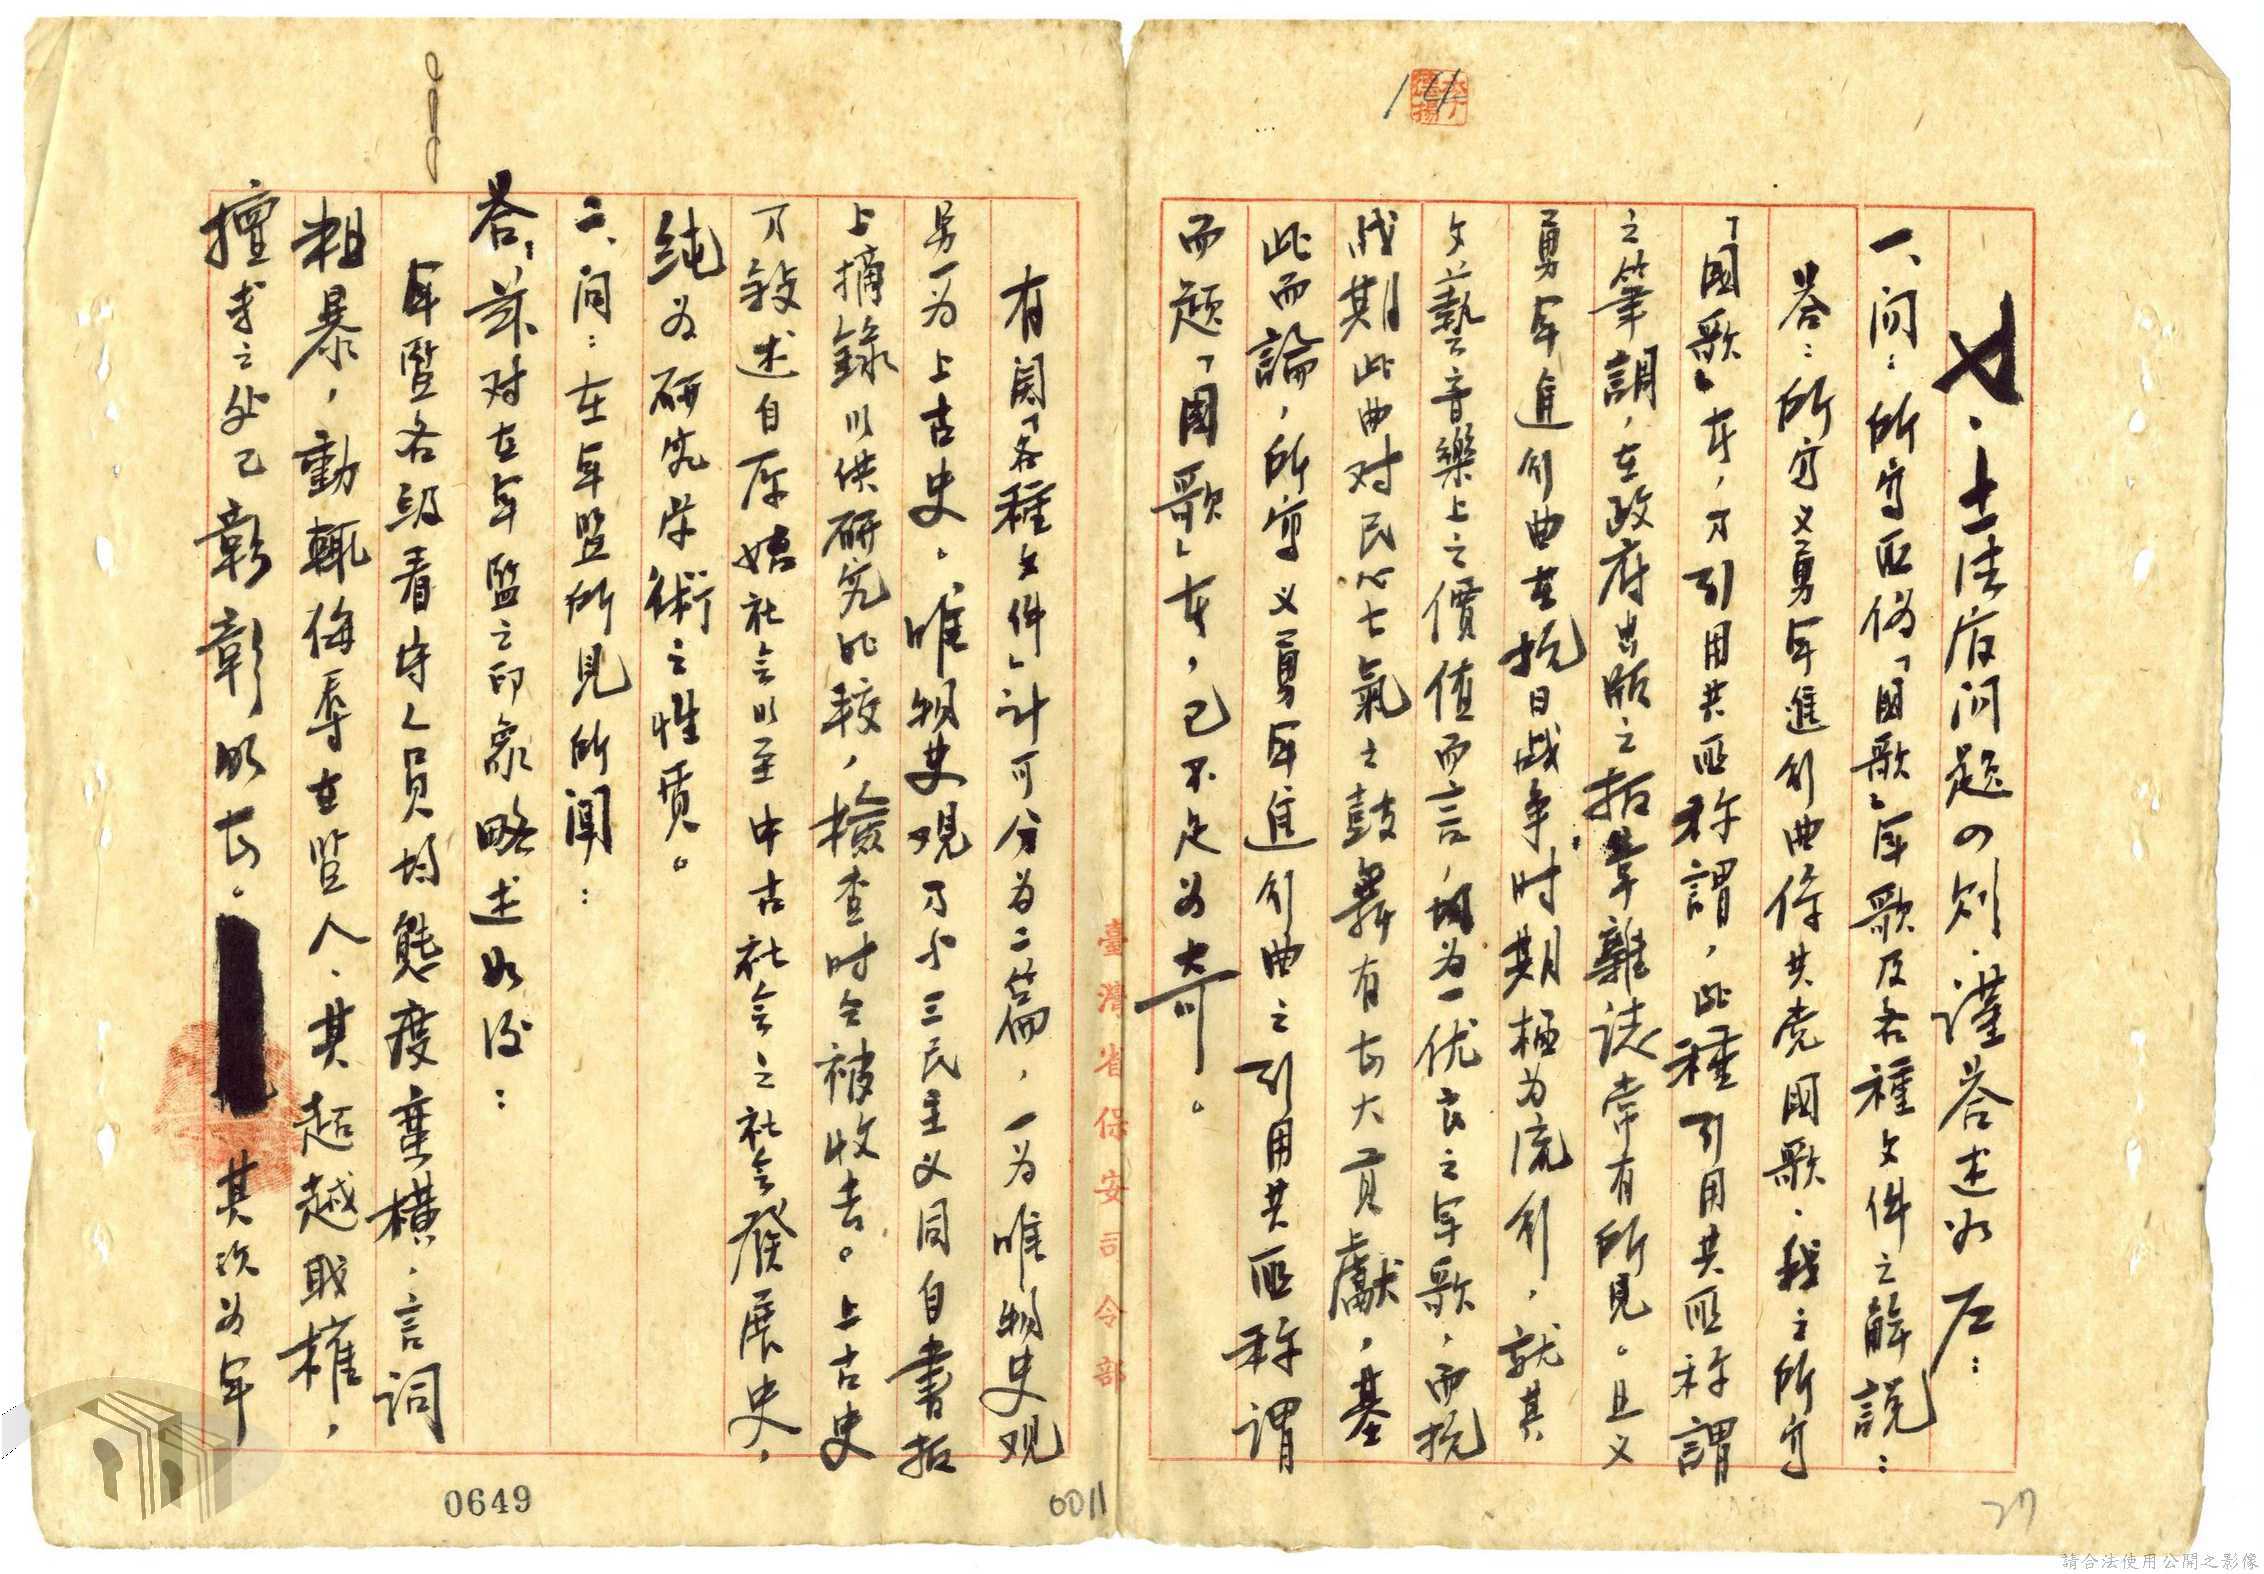 14
七、十一法庭问题の则．謹荅述如左：
一、问：所写匹伪「国歌」军歌及各種文件之解説：
荅：所写义勇军進行曲係共党国歌．我之所写
「國歌」者，乃引用共匪称謂，此種引用共匪称謂
之筆調，在政府出版之报章雜誌常有所見。且义
勇军進行曲在抗日战争时期極为流行，就其
文藝音樂上之價值而言，均为一优良之军歌，而抗
战期此曲对民心士氣之鼓舞有甚大貢獻，基
此而論，所写义勇军進行曲之引用共匪称謂
而题「國歌」者，已不足为奇。
臺灣省保安司令部
有関「各種文件」计可分为二篇，一为唯物史观
另一为上古史。唯物史观乃与三民主义同自書报
上摘錄以供研究比较，檢查时全被收去。上古史
乃敍述自原始社会以至中古社会之社会發展史，
纯为研究学術之性质。
二、问：在军监所見所聞：
荅：兹对在军监之印象略述如後：
军监各級看守人员均態度蛮横，言词
粗暴，動輒侮辱在监人．其超越职權，
擅专之处已彰彰明甚。 其次为军
0649
0011
27
請合法使用公開之影像